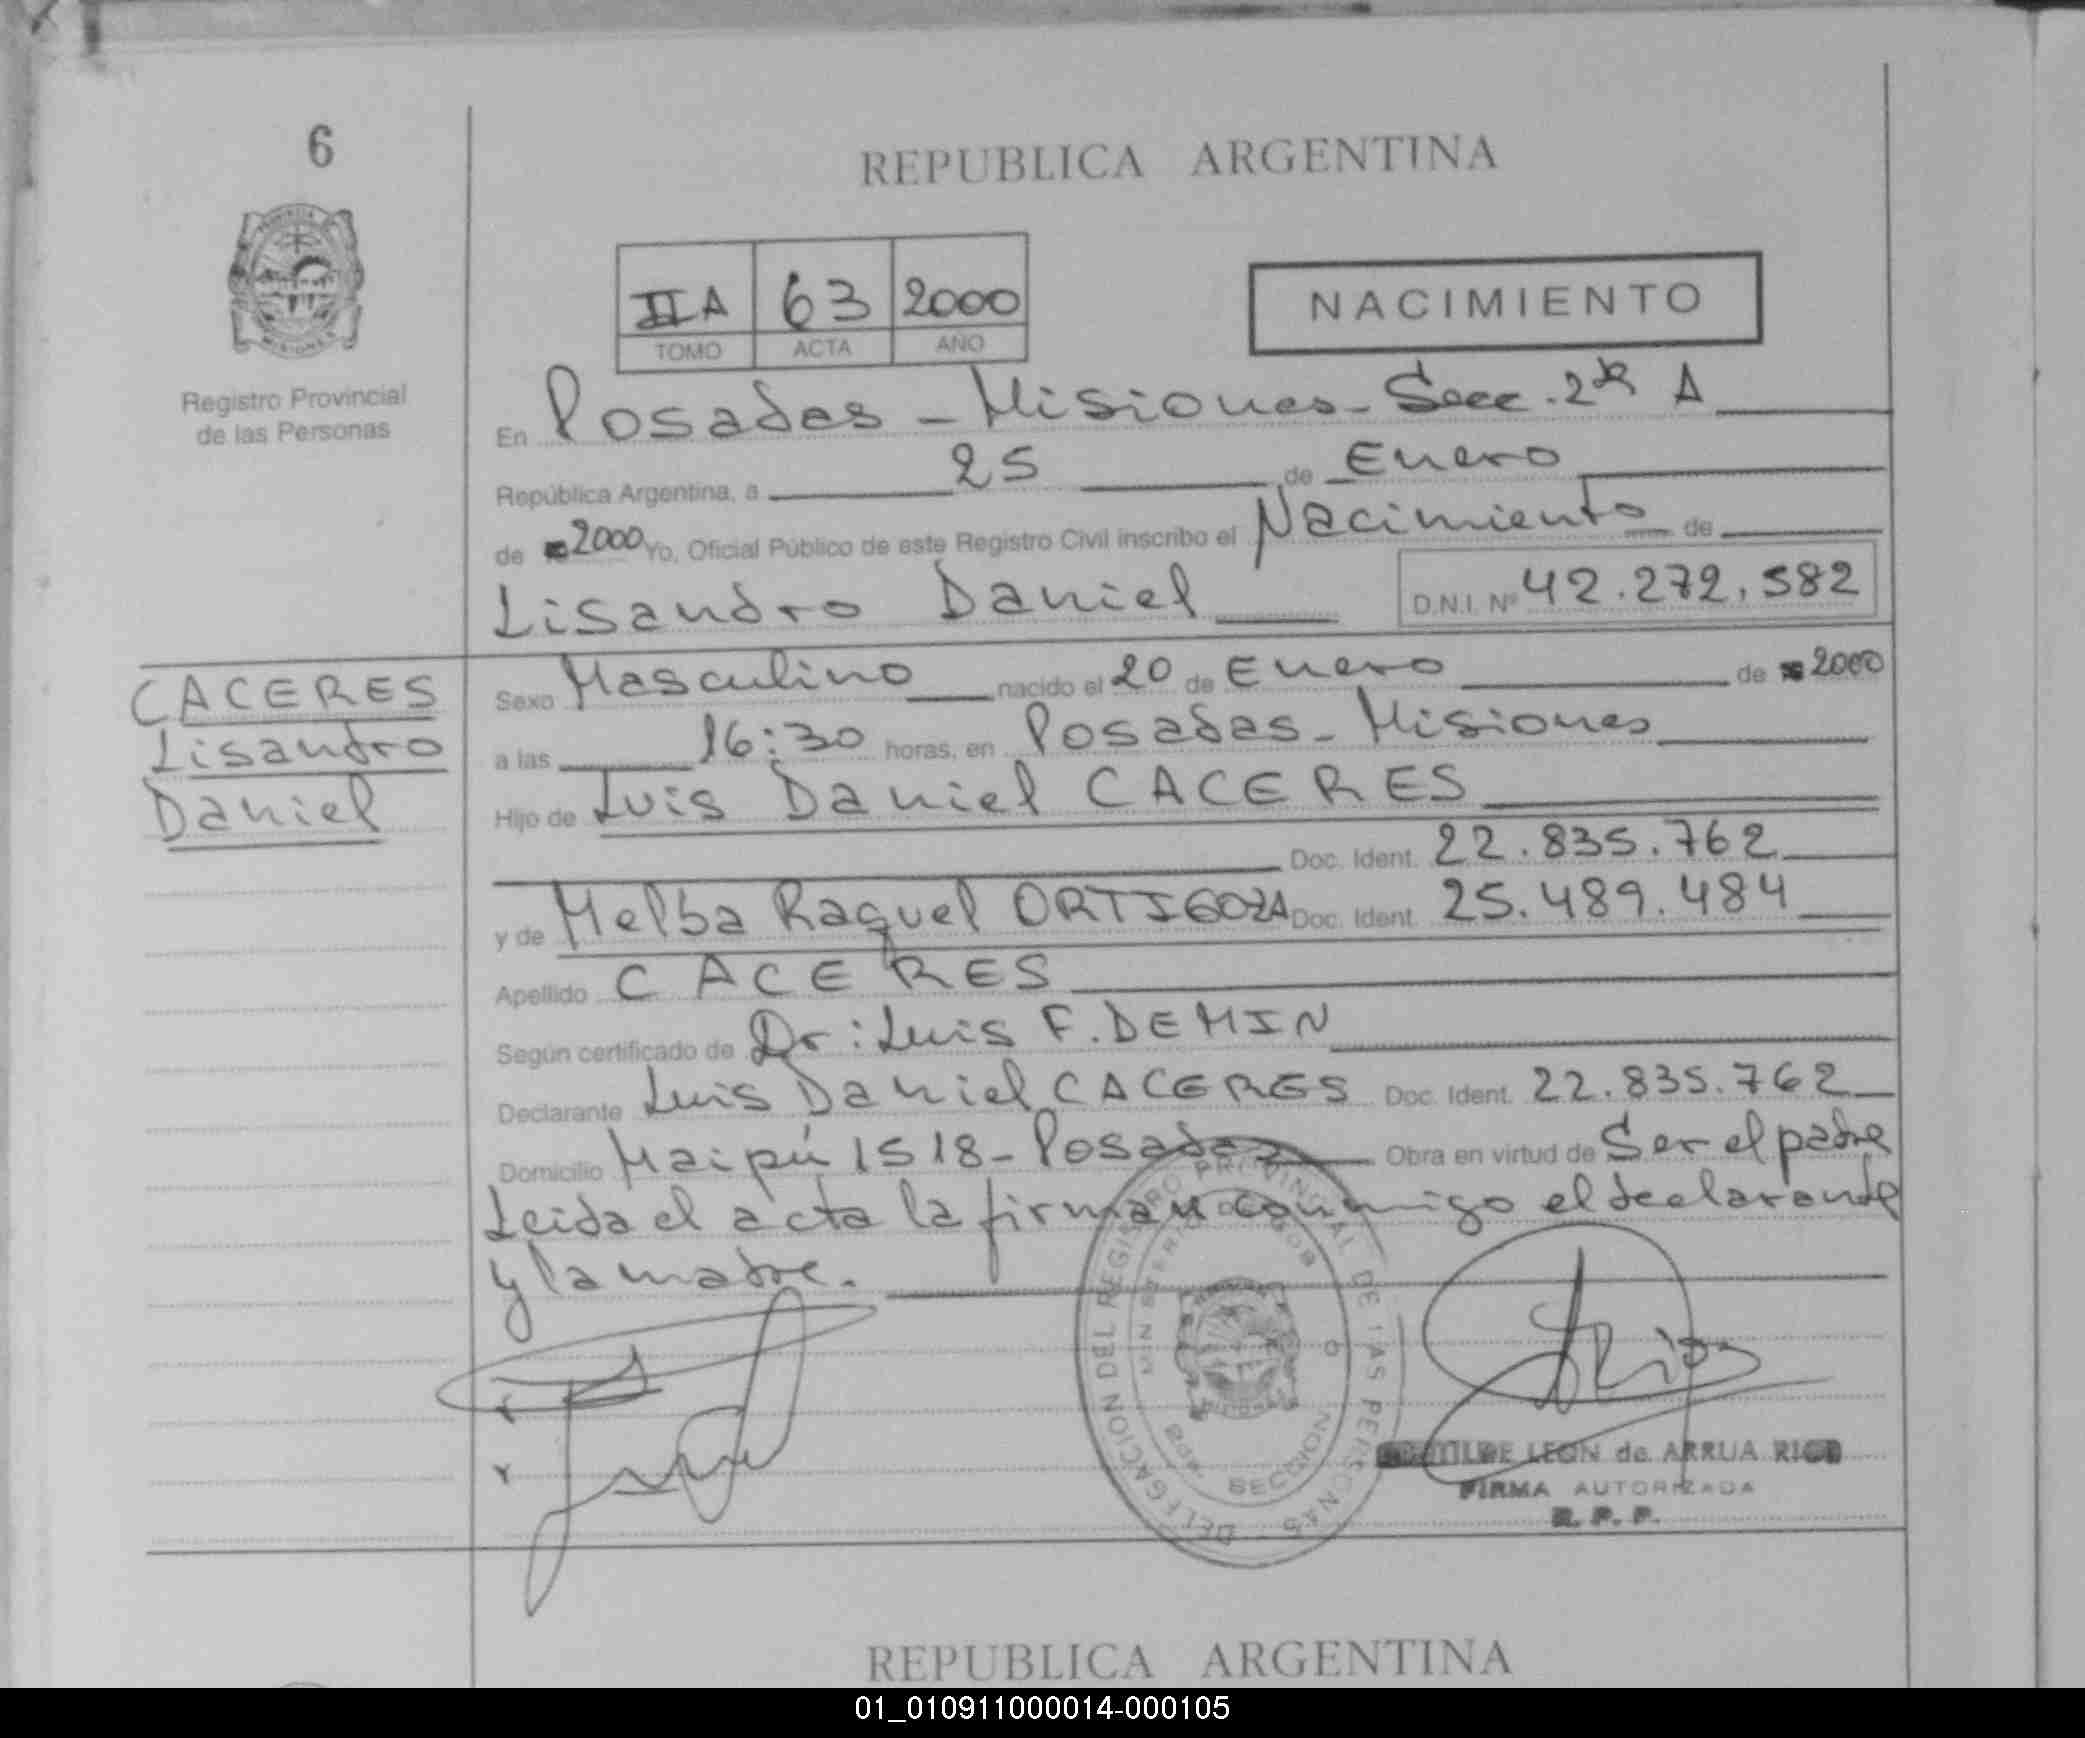 6
REPUBLICA ARGENTINA
IIA 63 2000
TOMO ACTA AÑO
NACIMIENTO
Registro Provincial
de las Personas
En Posadas - Misiones - Secc. 2da A
República Argentina, a 25 de Enero
de 2000 Yo, Oficial Público de este Registro Civil inscribo el Nacimiento de
Lisandro Daniel D.N.I. Nº 42.272.582
CACERES
Lisandro
Daniel
Sexo Masculino nacido el 20 de Enero de 2000
a las 16:30 horas, en Posadas - Misiones
Hijo de Luis Daniel CACERES
Doc. Ident. 22.835.762
y de Melba Raquel ORTIGOZA Doc. Ident. 25.489.484
Apellido CACERES
Según certificado de Dr: Luis F. DEMIN
Declarante Luis Daniel CACERES Doc. Ident. 22.835.762
Domicilio Maipú 1518 - Posadas Obra en virtud de Ser el padre
Leida el acta la firman conmigo el declarante
y la madre.
DELEGACION DEL REGISTRO PROVINCIAL DE LAS PERSONAS
SECCION
LEON de ARRUA RIOS
FIRMA AUTORIZADA
R. P. P.
REPUBLICA ARGENTINA
01_010911000014-000105